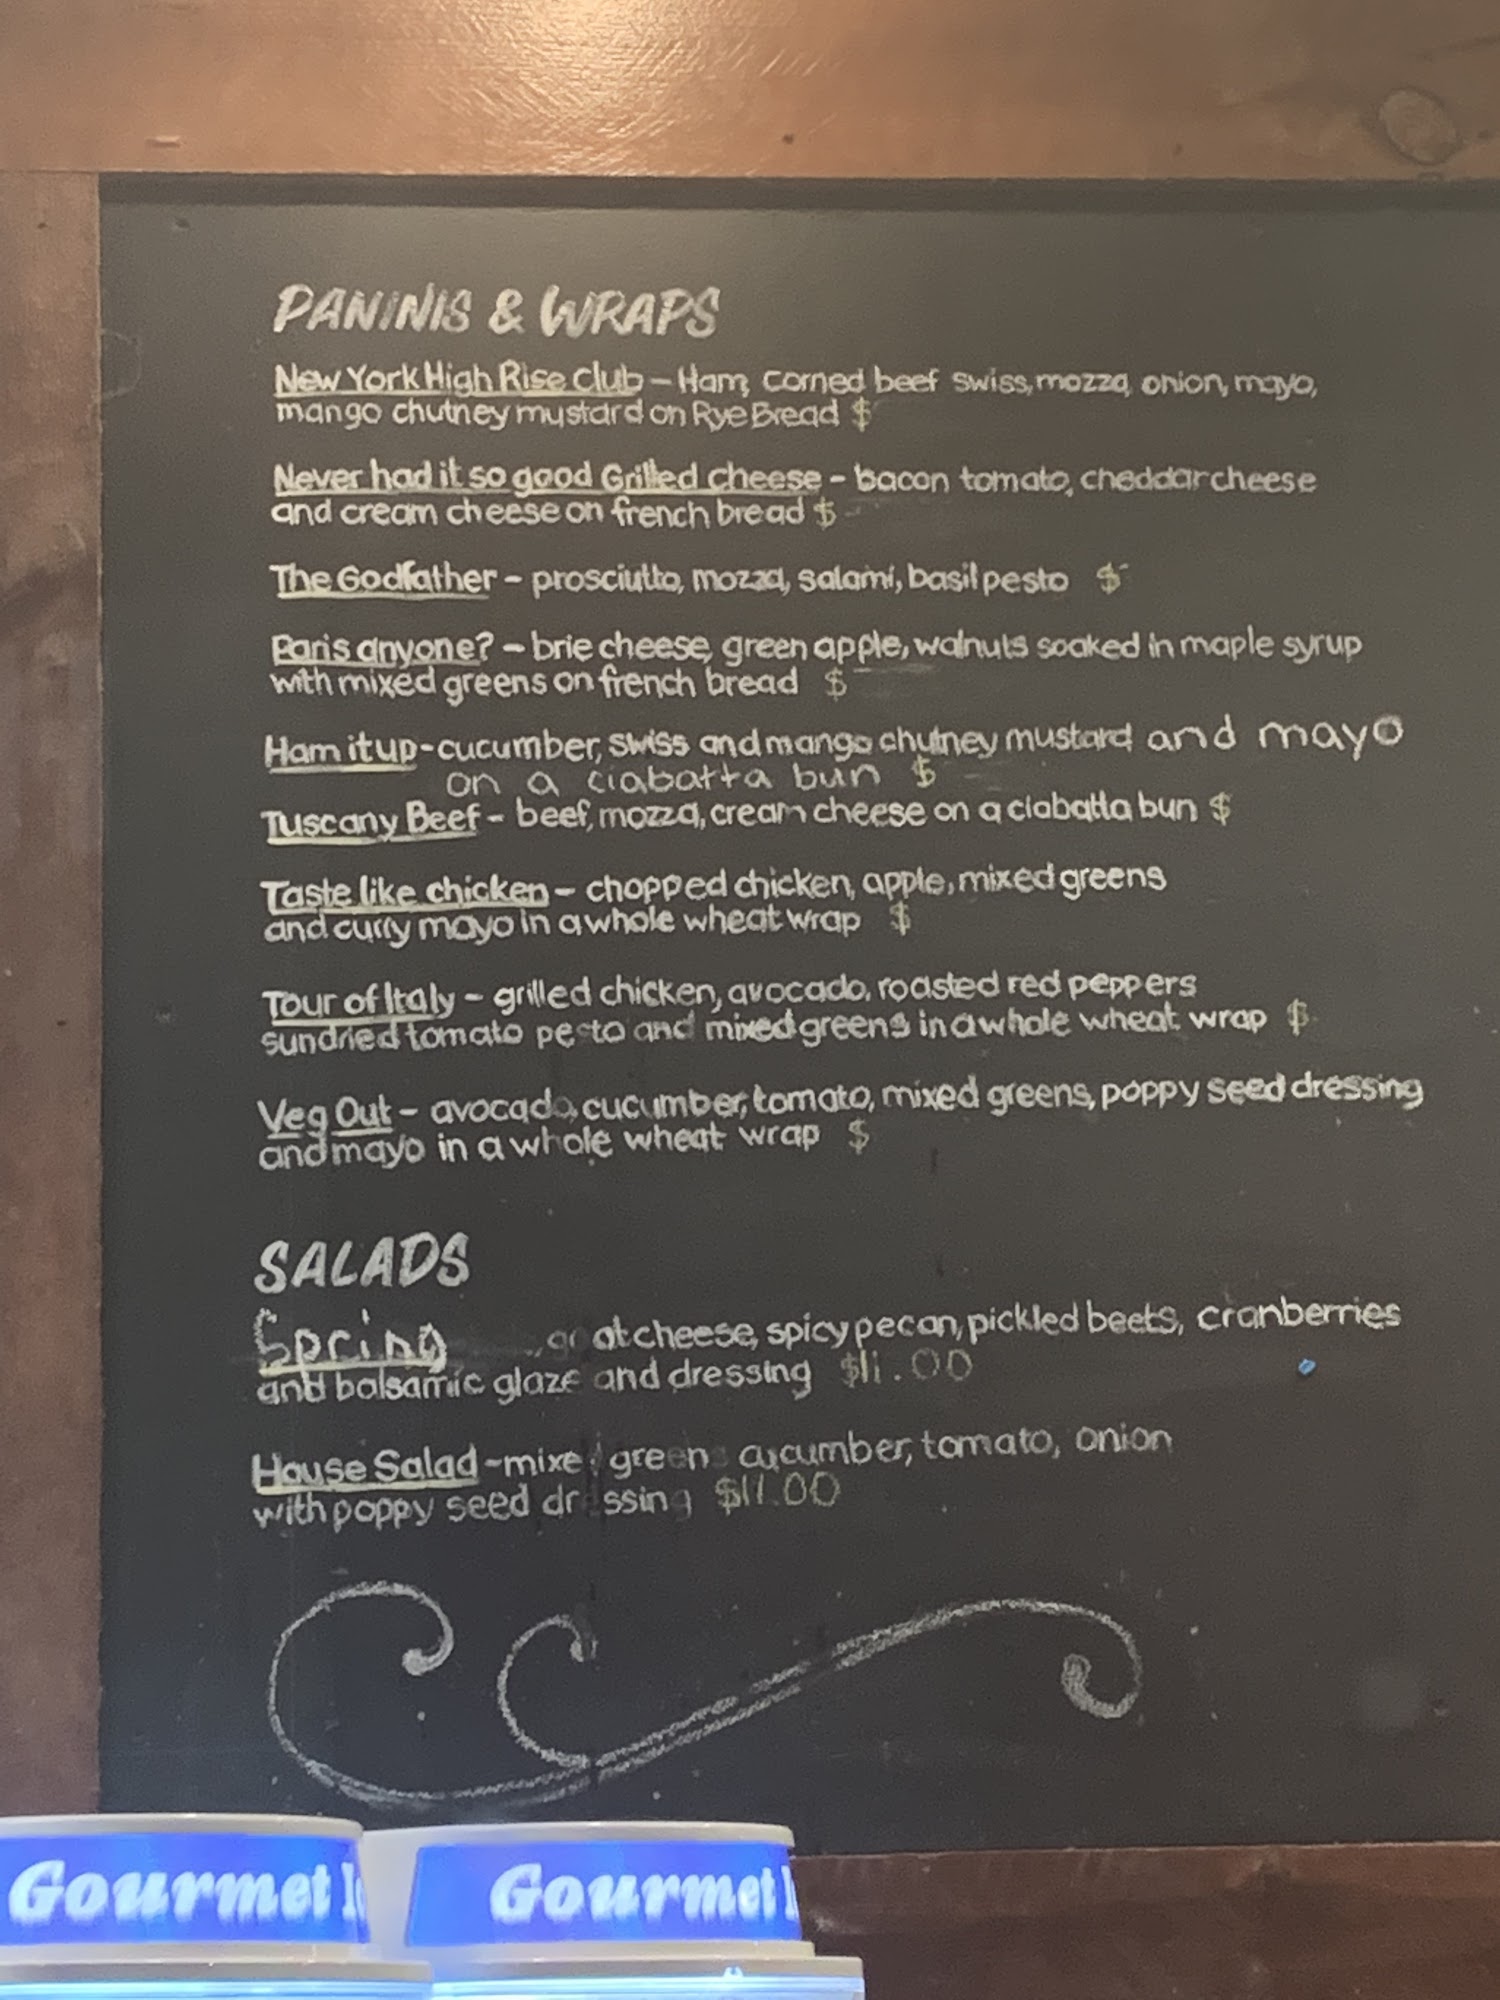 PANINIS & WRAPS
New York High Rise Club - Ham, corned beef swiss, mozza, onion, mayo,
mango chutney mustard on Rye Bread $
Never had it so good Grilled cheese - bacon tomato, cheddar cheese
and cream cheese on french bread $
The Godfather - prosciutto, mozza, salami, basil pesto $
Paris anyone? - brie cheese, green apple, walnuts soaked in maple syrup
with mixed greens on french bread $
Ham it up - cucumber, swiss and mango chutney mustard and mayo
on a ciabatta bun $
Tuscany Beef - beef, mozza, cream cheese on a ciabatta bun $
Taste like chicken - chopped chicken, apple, mixed greens
and curry mayo in a whole wheat wrap $
Tour of Italy - grilled chicken, avocado, roasted red peppers
sundried tomato pesto and mixed greens in a whole wheat wrap $
Veg Out - avocado, cucumber, tomato, mixed greens, poppy seed dressing
and mayo in a whole wheat wrap $
SALADS
Spring goat cheese, spicy pecan, pickled beets, cranberries
and balsamic glaze and dressing $11.00
House Salad - mixed greens cucumber, tomato, onion
with poppy seed dressing $11.00
Gourmet Gourmet